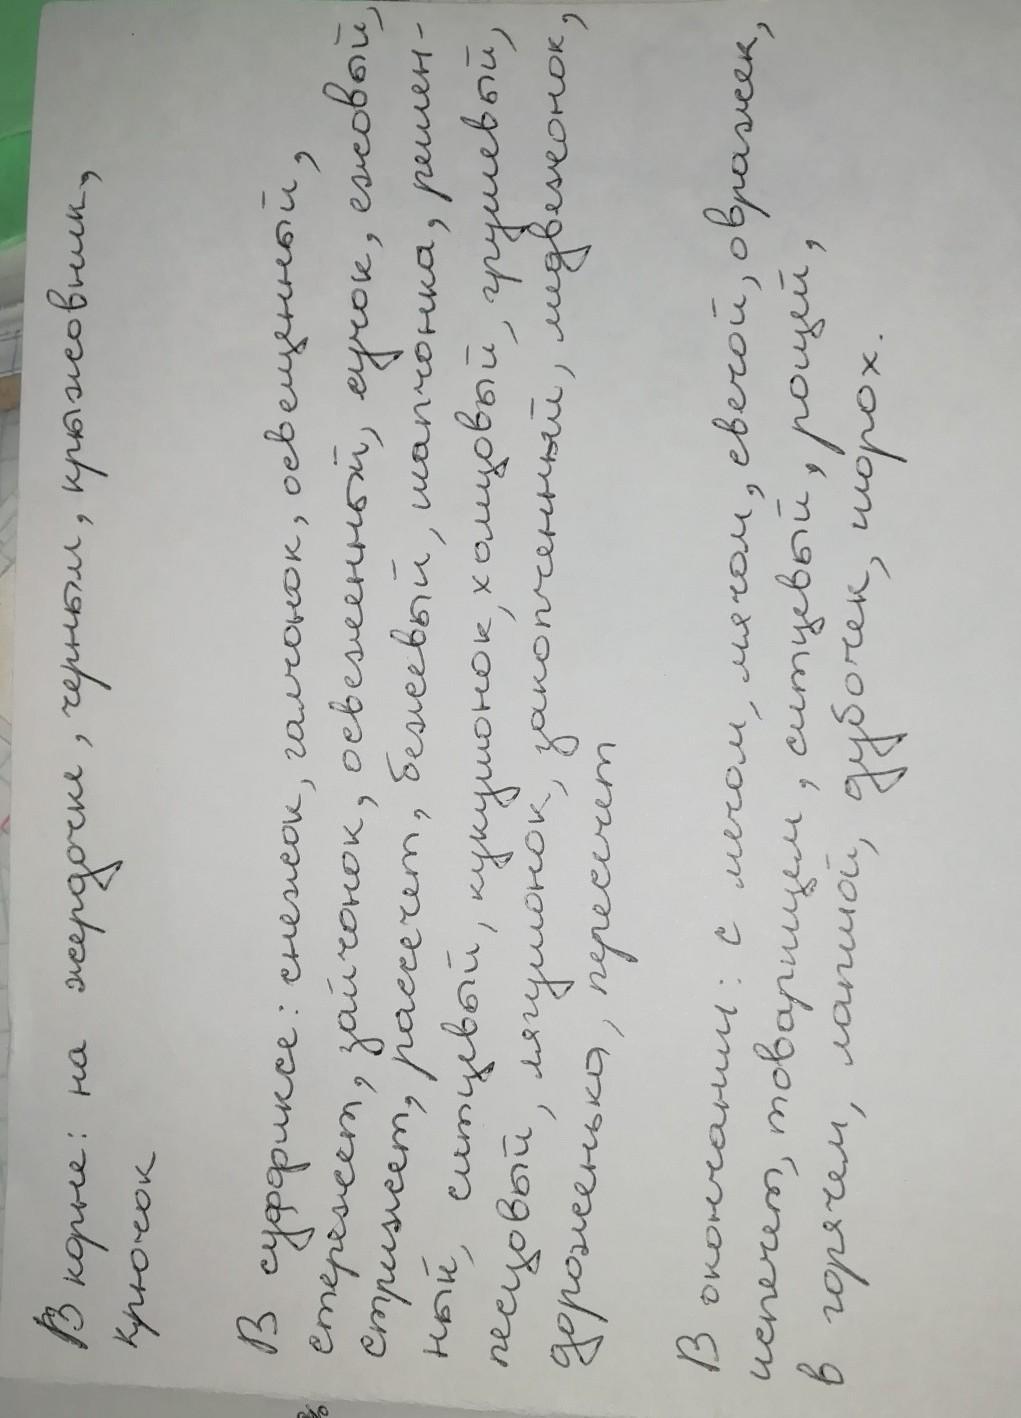 В корне: на жердочке, черным, крыжовник,
крючок
В суффиксе: снежок, галчонок, освещенный,
стережет, зайчонок, освеженный, сучок, ежовый,
стрижет, рассечет, бежевый, шапчонка, решен-
ный, ситцевый, кукушонок, холщовый, грушевый,
песцовый, лягушонок, закопченный, медвежонок,
дороженька, пересчет
В окончании: с мечом, мячом, свечой, овражек,
испечет, товарищем, ситцевый, рощей,
в горячем, лапшой, дубочек, шорох.